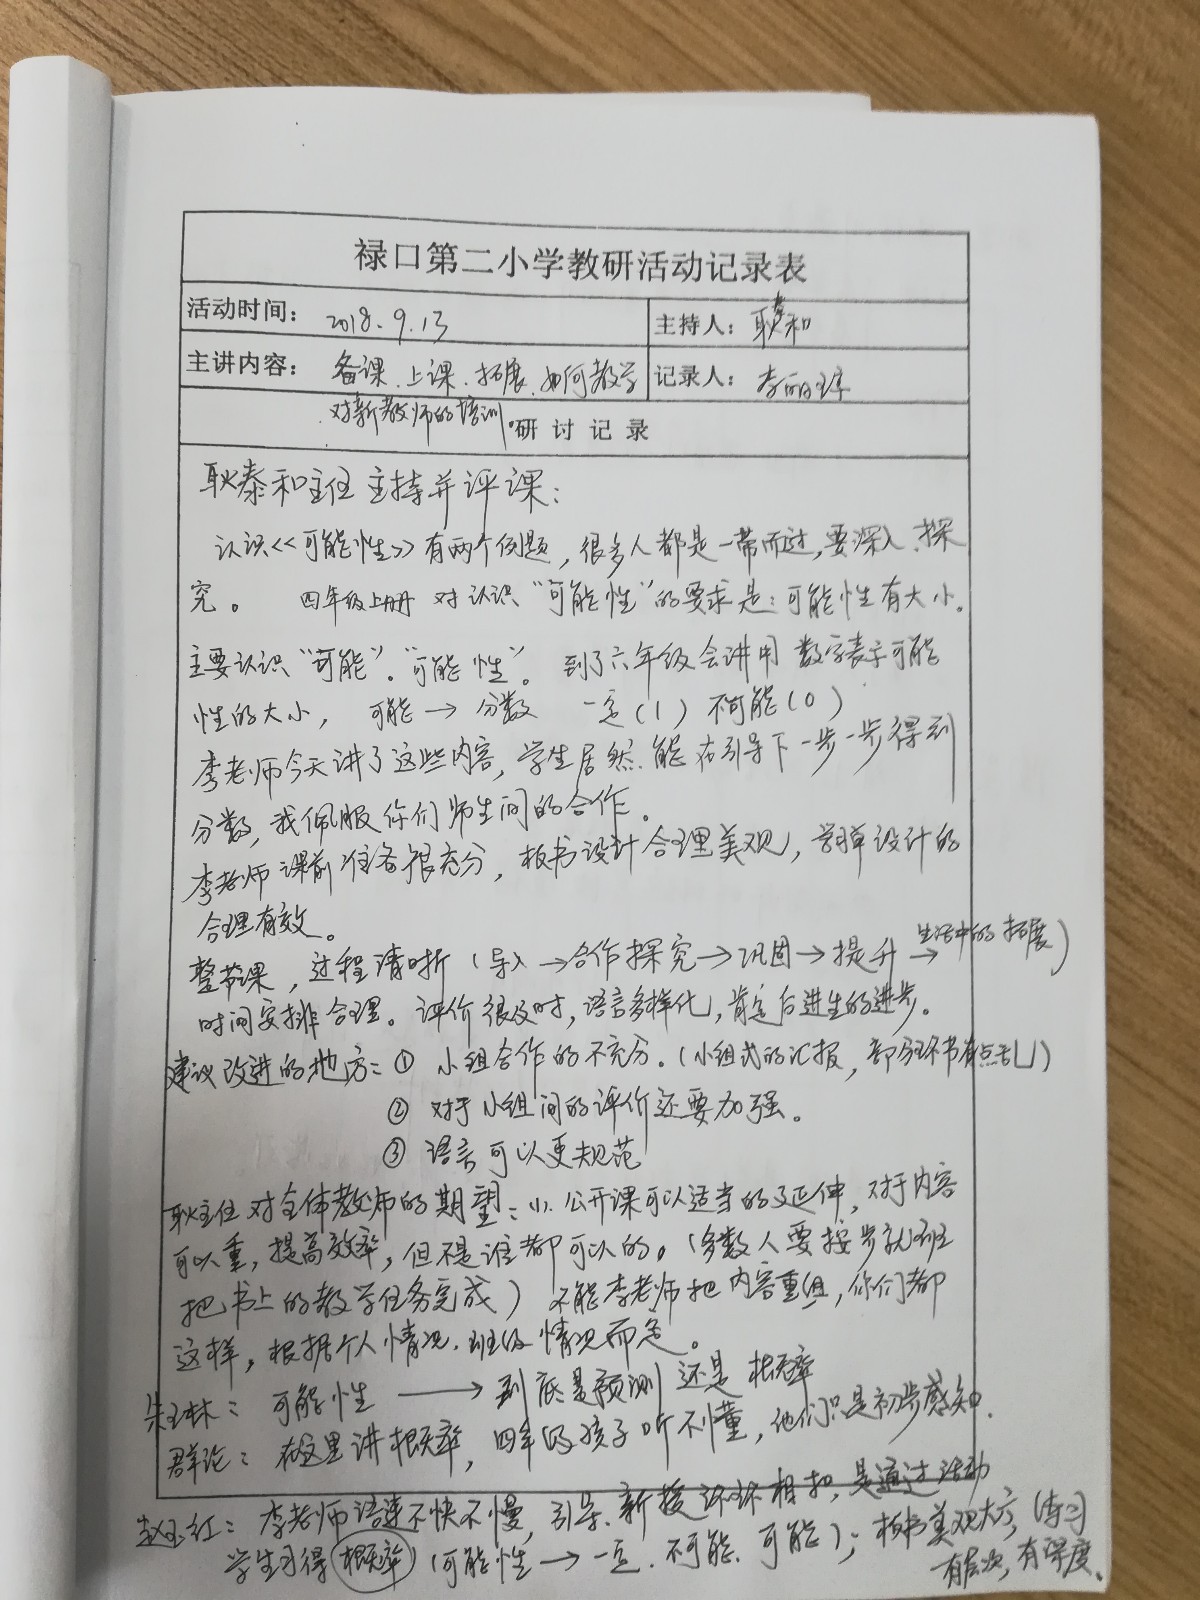 禄口第二小学教研活动记录表
活动时间： 2018.9.13 主持人：耿泰和
主讲内容： 备课.上课.拓展.如何教学 记录人：李丽
对新教师的培训.
研讨记录
耿泰和主任主持并评课：
认识<<可能性>>有两个例题，很多人都是一带而过，要深入、探
究。 四年级上册 对认识“可能性”的要求是：可能性有大小。
主要认识“可能”.“可能性”。 到了六年级会讲用数字表示可能
性的大小， 可能→分数 一定(1) 不可能(0)
李老师今天讲了这些内容，学生居然.能在引导下一步一步得到
分数，我佩服你们师生间的合作。
李老师课前准备很充分，板书设计合理美观，学习单设计的
合理有效。
整节课，过程清晰(导入→合作探究→巩固→提升→生活中的拓展)
时间安排合理。评价很及时，语言多样化，肯定后进生的进步。
建议改进的地方：① 小组合作的不充分。(小组式的汇报，部分环节有点乱)
② 对于小组间的评价还要加强。
③ 语言可以更规范
耿主任对全体教师的期望：(1). 公开课可以适当的延伸，对于内容
可以重，提高效率，但不是谁都可以的。(多数人要按步就班
把书上的教学任务完成) 不能李老师把内容重组，你们都
这样，根据个人情况.班级情况而定。
朱玉林： 可能性 → 到底是预测还是概率
群论：在这里讲概率，四年级孩子听不懂，他们只是初步感知.
赵玉红：李老师语速不快不慢，引导.新授环环相扣，是通过活动
学生习得概率(可能性→一定.不可能.可能)；板书美观大方，练习
有层次，有深度。